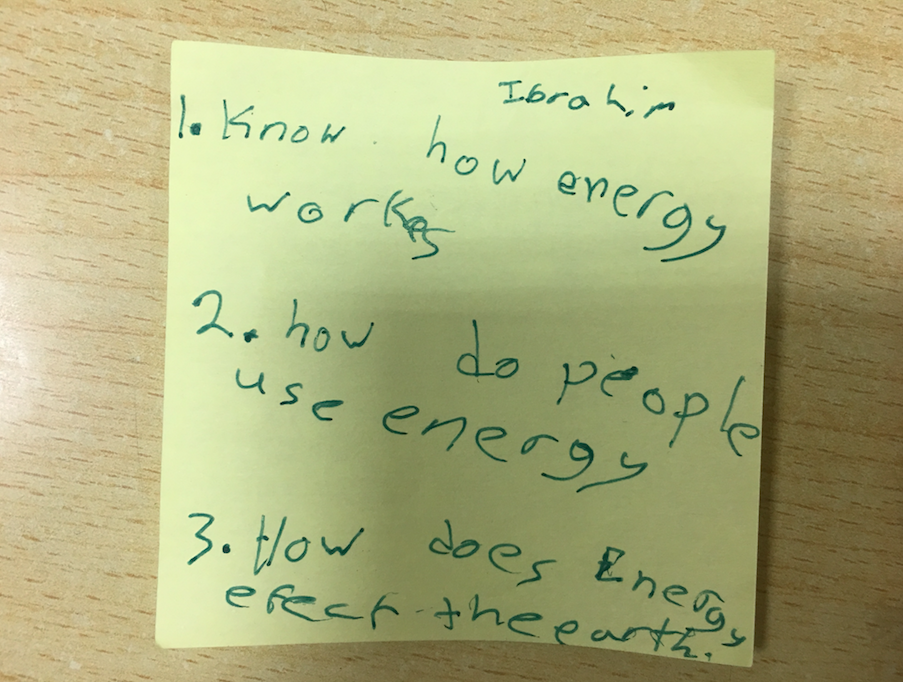 Ibrahim
1. Know how energy
works
2. how do people
use energy
3. How does Energy
efect the earth.